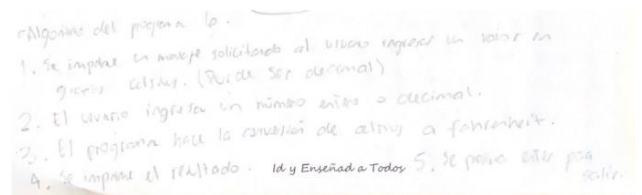 Algoritmo del programa 6.
1. Se imprime un mensaje solicitando al usuario ingresar un valor en
grados celsius. (Puede ser decimal)
2. El usuario ingresa un número entero o decimal.
3. El programa hace la conversión de celsius a fahrenheit.
4. Se imprime el resultado. Id y Enseñad a Todos 5. Se presiona enter para
salir.